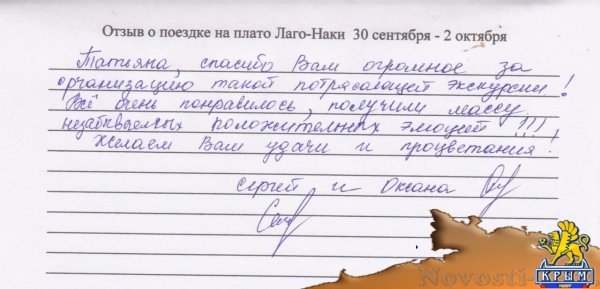 Отзыв о поездке на плато Лаго-Наки 30 сентября - 2 октября
Татьяна, спасибо Вам огромное за
организацию такой потрясающей экскурсии!
Всё очень понравилось, получили массу
незабываемых положительных эмоций!!!,
Желаем Вам удачи и процветания.
Сергей и Оксана
Novosti-
КРЫМ